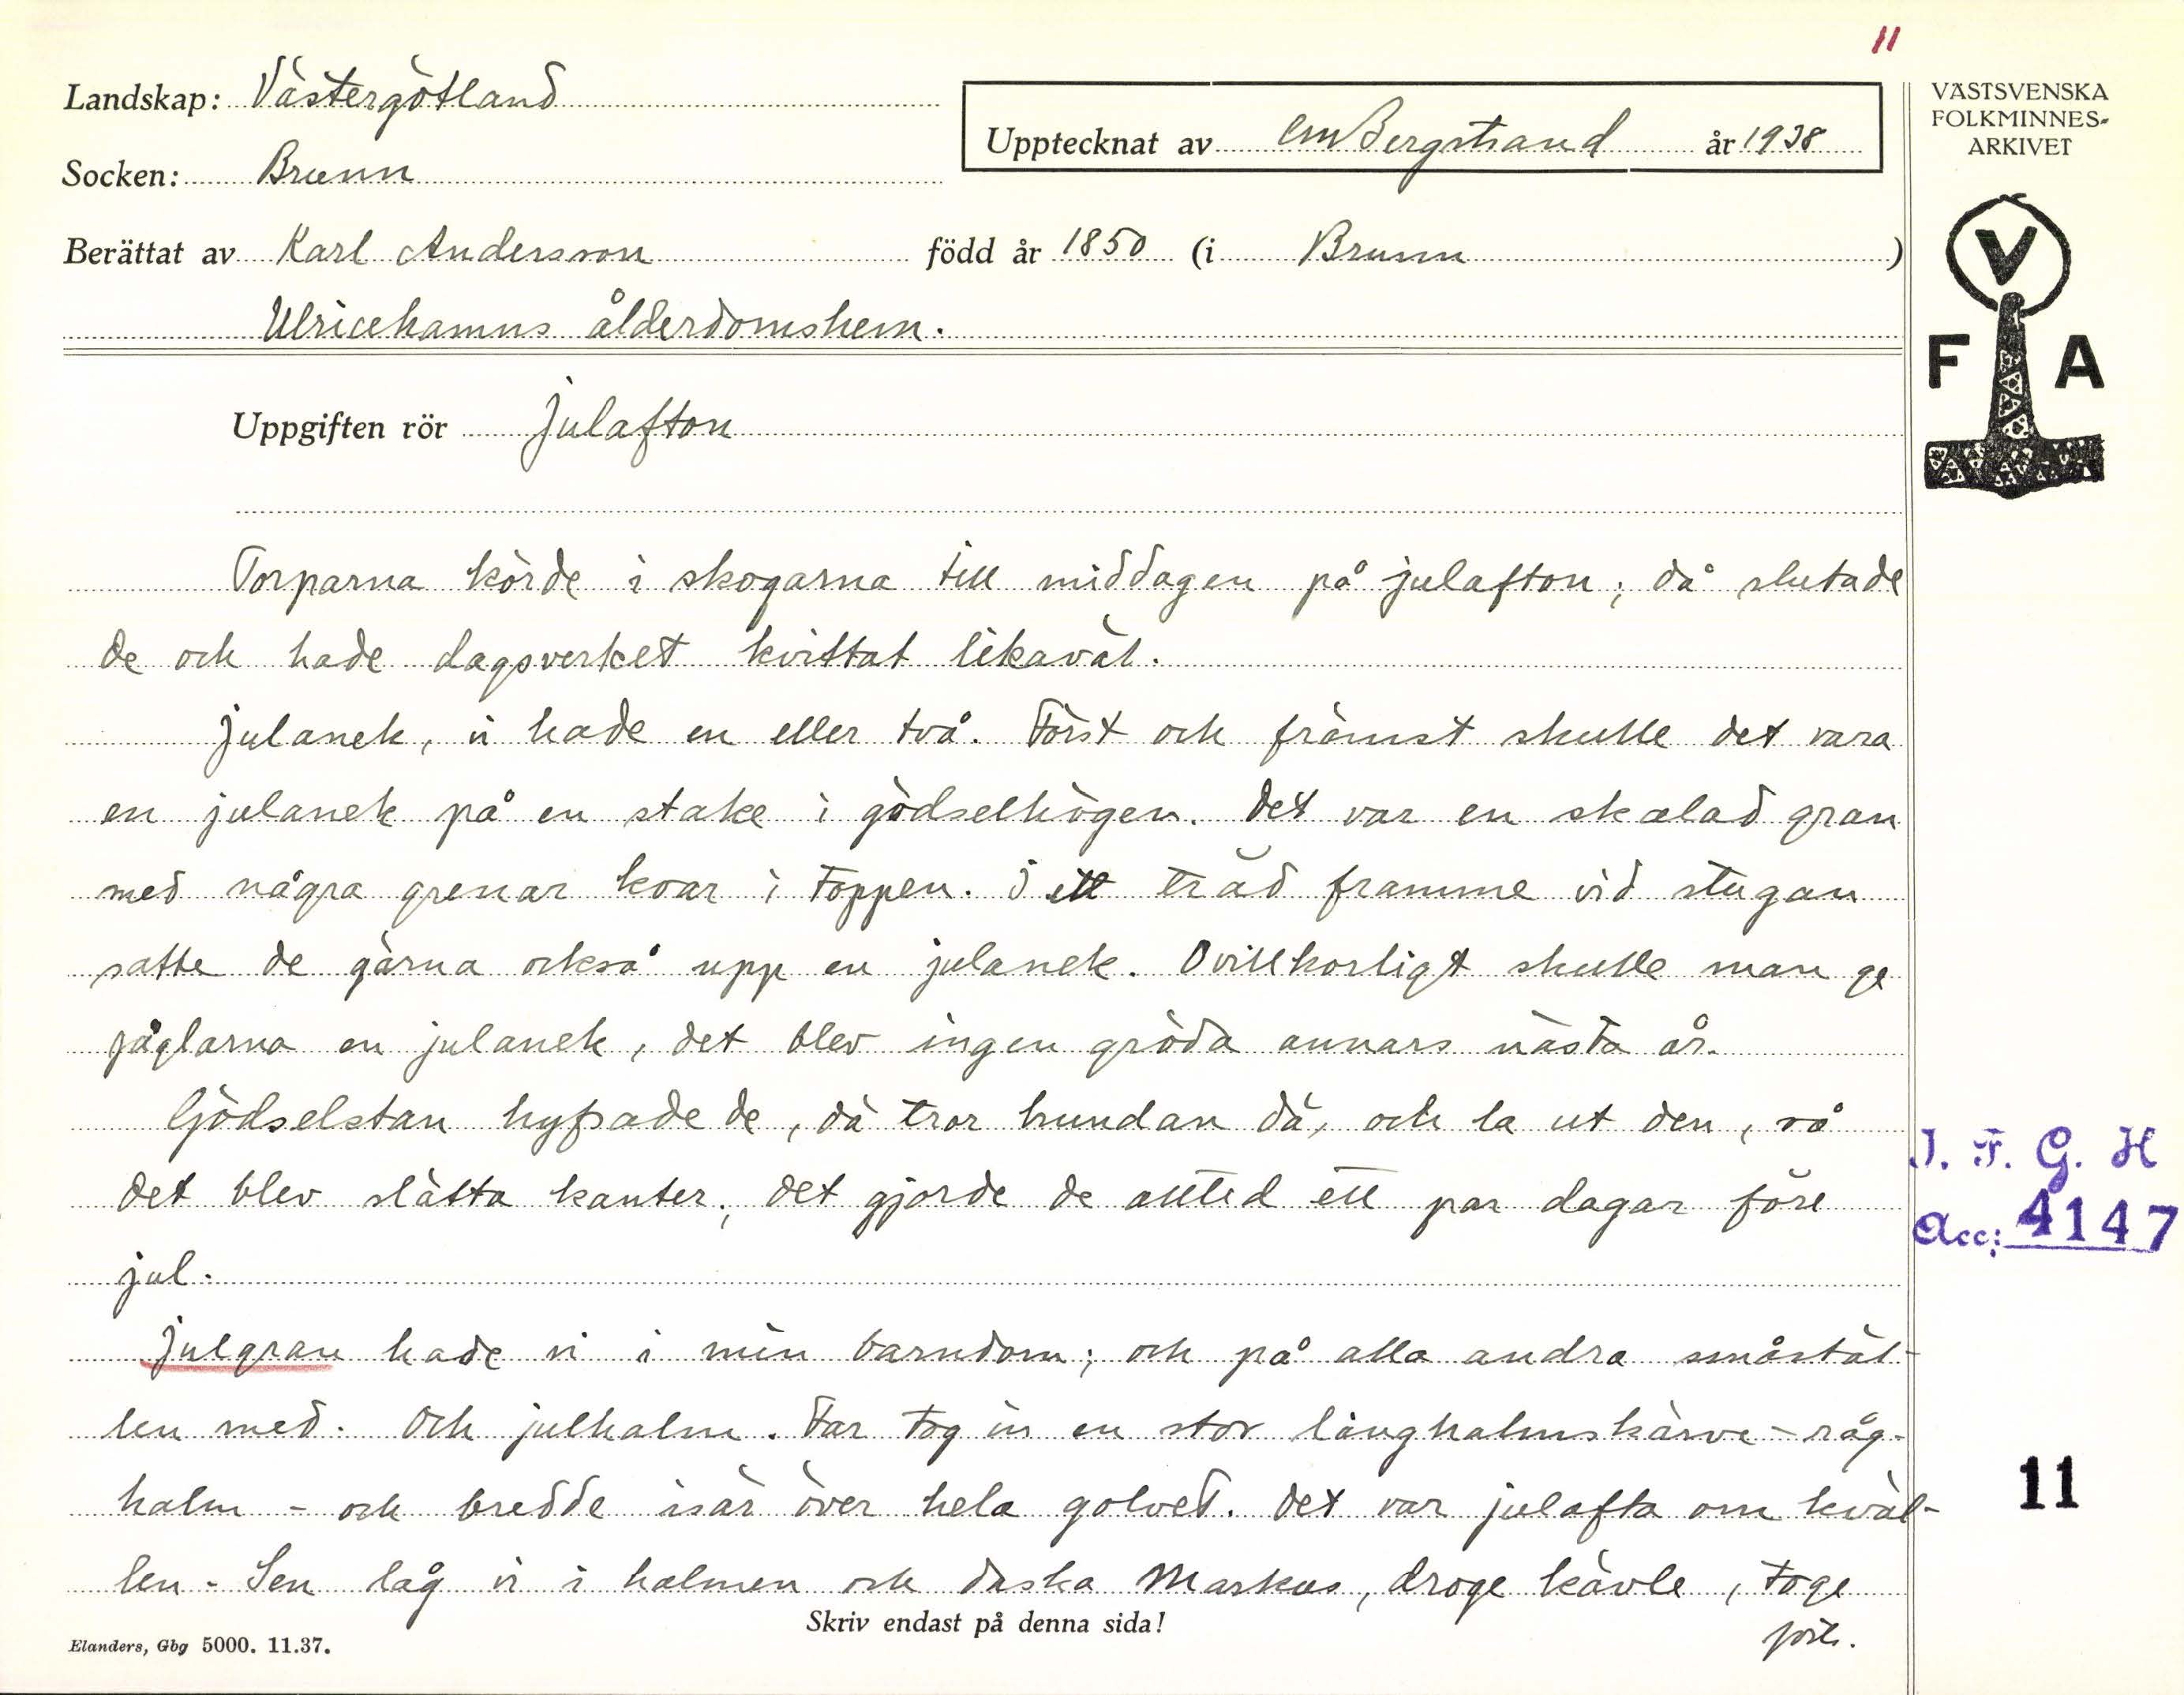 11
Landskap: Västergötland
Upptecknat av CM Bergstrand år 1938
VÄSTSVENSKA
FOLKMINNES-
ARKIVET
Socken: Brunn
Berättat av Karl Andersson född år 1850 (i Brunn)
Ulricehamns ålderdomshem.
V
F A
Uppgiften rör Julafton
Torparna körde i skogarna till middagen på julafton; då slutade
de och hade dagsverket kvittat likaväl.
Julanek, vi hade en eller två. Först och främst skulle det vara
en julanek på en stake i gödselhögen. Det var en skalad gran
med några grenar kvar i toppen. I ett träd framme vid stugan
satte de gärna också upp en julanek. Ovillkorligt skulle man ge
fåglarna en julanek, det blev ingen gröda annars nästa år.
Gödselstan hyfsade de, dä tror hundan dä, och la ut den, så
det blev slätta kanter; det gjorde de alltid ett par dagar före
jul.
Julgran hade vi i min barndom; och på alla andra småstäl-
len med. Och julhalm. Far tog in en stor långhalmskärve - råg-
halm - och bredde isär över hela golvet. Det var julafta om kväl-
len. Sen låg vi i halmen och daska Markus, droge kävle, toge
forts.
J. F. G. H
Acc: 4147
11
Skriv endast på denna sida!
Elanders, Gbg 5000. 11.37.